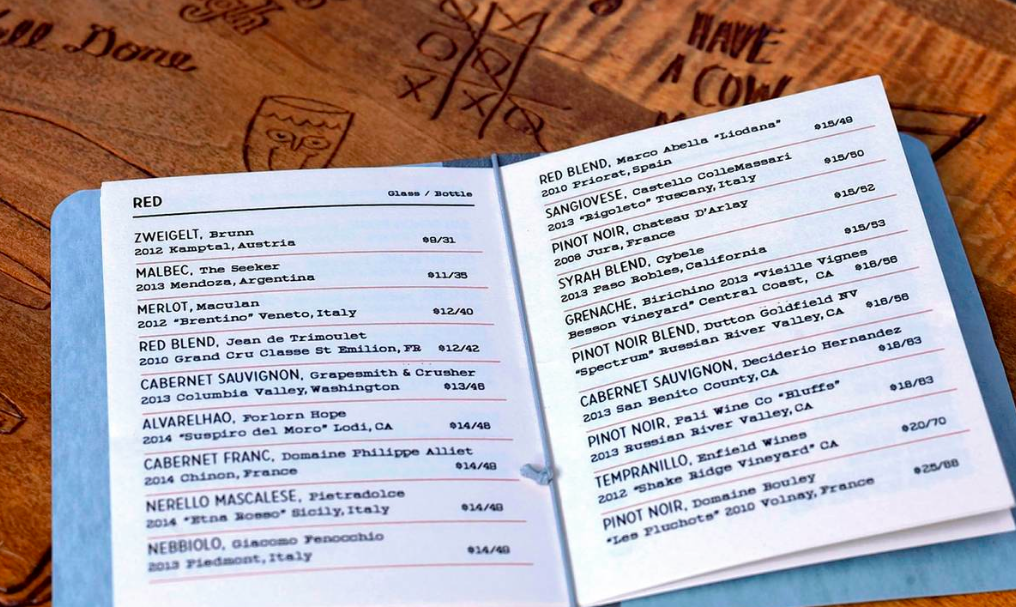 ll Done
HAVE
A COW
RED Glass / Bottle
ZWEIGELT, Brunn
2012 Kamptal, Austria $9/31
MALBEC, The Seeker
2013 Mendoza, Argentina $11/35
MERLOT, Maculan
2012 "Brentino" Veneto, Italy $12/40
RED BLEND, Jean de Trimoulet
2010 Grand Cru Classe St Emilion, FR $12/42
CABERNET SAUVIGNON, Grapesmith & Crusher
2013 Columbia Valley, Washington $13/46
ALVARELHAO, Forlorn Hope
2014 "Suspiro del Moro" Lodi, CA $14/48
CABERNET FRANC, Domaine Philippe Alliet
2014 Chinon, France $14/49
NERELLO MASCALESE, Pietradolce
2014 "Etna Rosso" Sicily, Italy $14/49
NEBBIOLO, Giacomo Fenocchio
2013 Piedmont, Italy $14/49
RED BLEND, Marco Abella "Liodana"
2010 Priorat, Spain $15/49
SANGIOVESE, Castello ColleMassari
2013 "Rigoleto" Tuscany, Italy $15/50
PINOT NOIR, Chateau D'Arlay
2008 Jura, France $15/52
SYRAH BLEND, Cybele
2013 Paso Robles, California $15/53
GRENACHE, Birichino 2013 "Vieille Vignes
Besson Vineyard" Central Coast, CA $16/56
PINOT NOIR BLEND, Dutton Goldfield NV
"Spectrum" Russian River Valley, CA $16/56
CABERNET SAUVIGNON, Deciderio Hernandez
2013 San Benito County, CA $18/63
PINOT NOIR, Pali Wine Co "Bluffs"
2013 Russian River Valley, CA $18/63
TEMPRANILLO, Enfield Wines
2012 "Shake Ridge Vineyard" CA $20/70
PINOT NOIR, Domaine Bouley
"Les Pluchots" 2010 Volnay, France $25/88